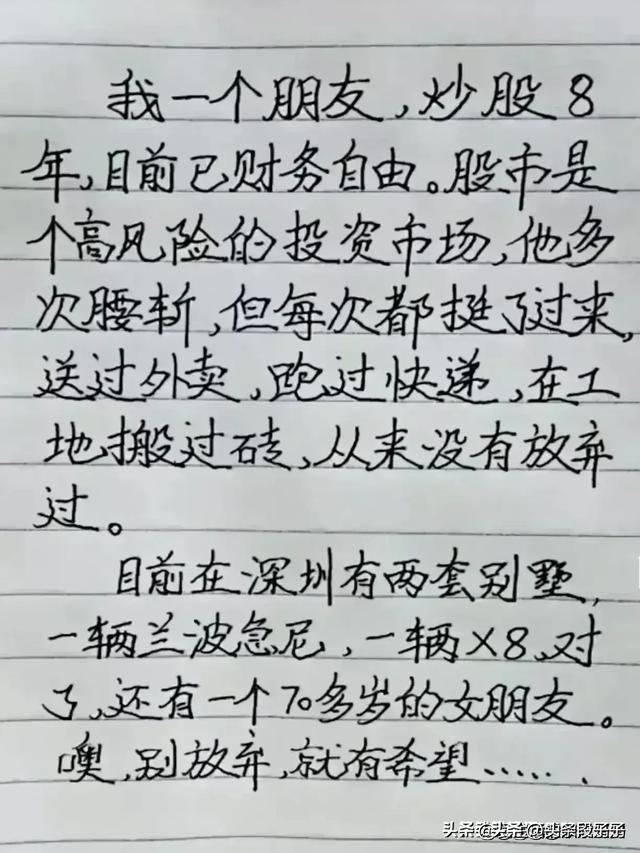 我一个朋友，炒股8
年，目前已财务自由。股市是
个高风险的投资市场，他多
次腰斩，但每次都挺了过来，
送过外卖，跑过快递，在工
地搬过砖，从来没有放弃
过。
目前在深圳有两套别墅，
一辆兰波急尼，一辆X8，对
了，还有一个70多岁的女朋友。
噢，别放弃，就有希望……